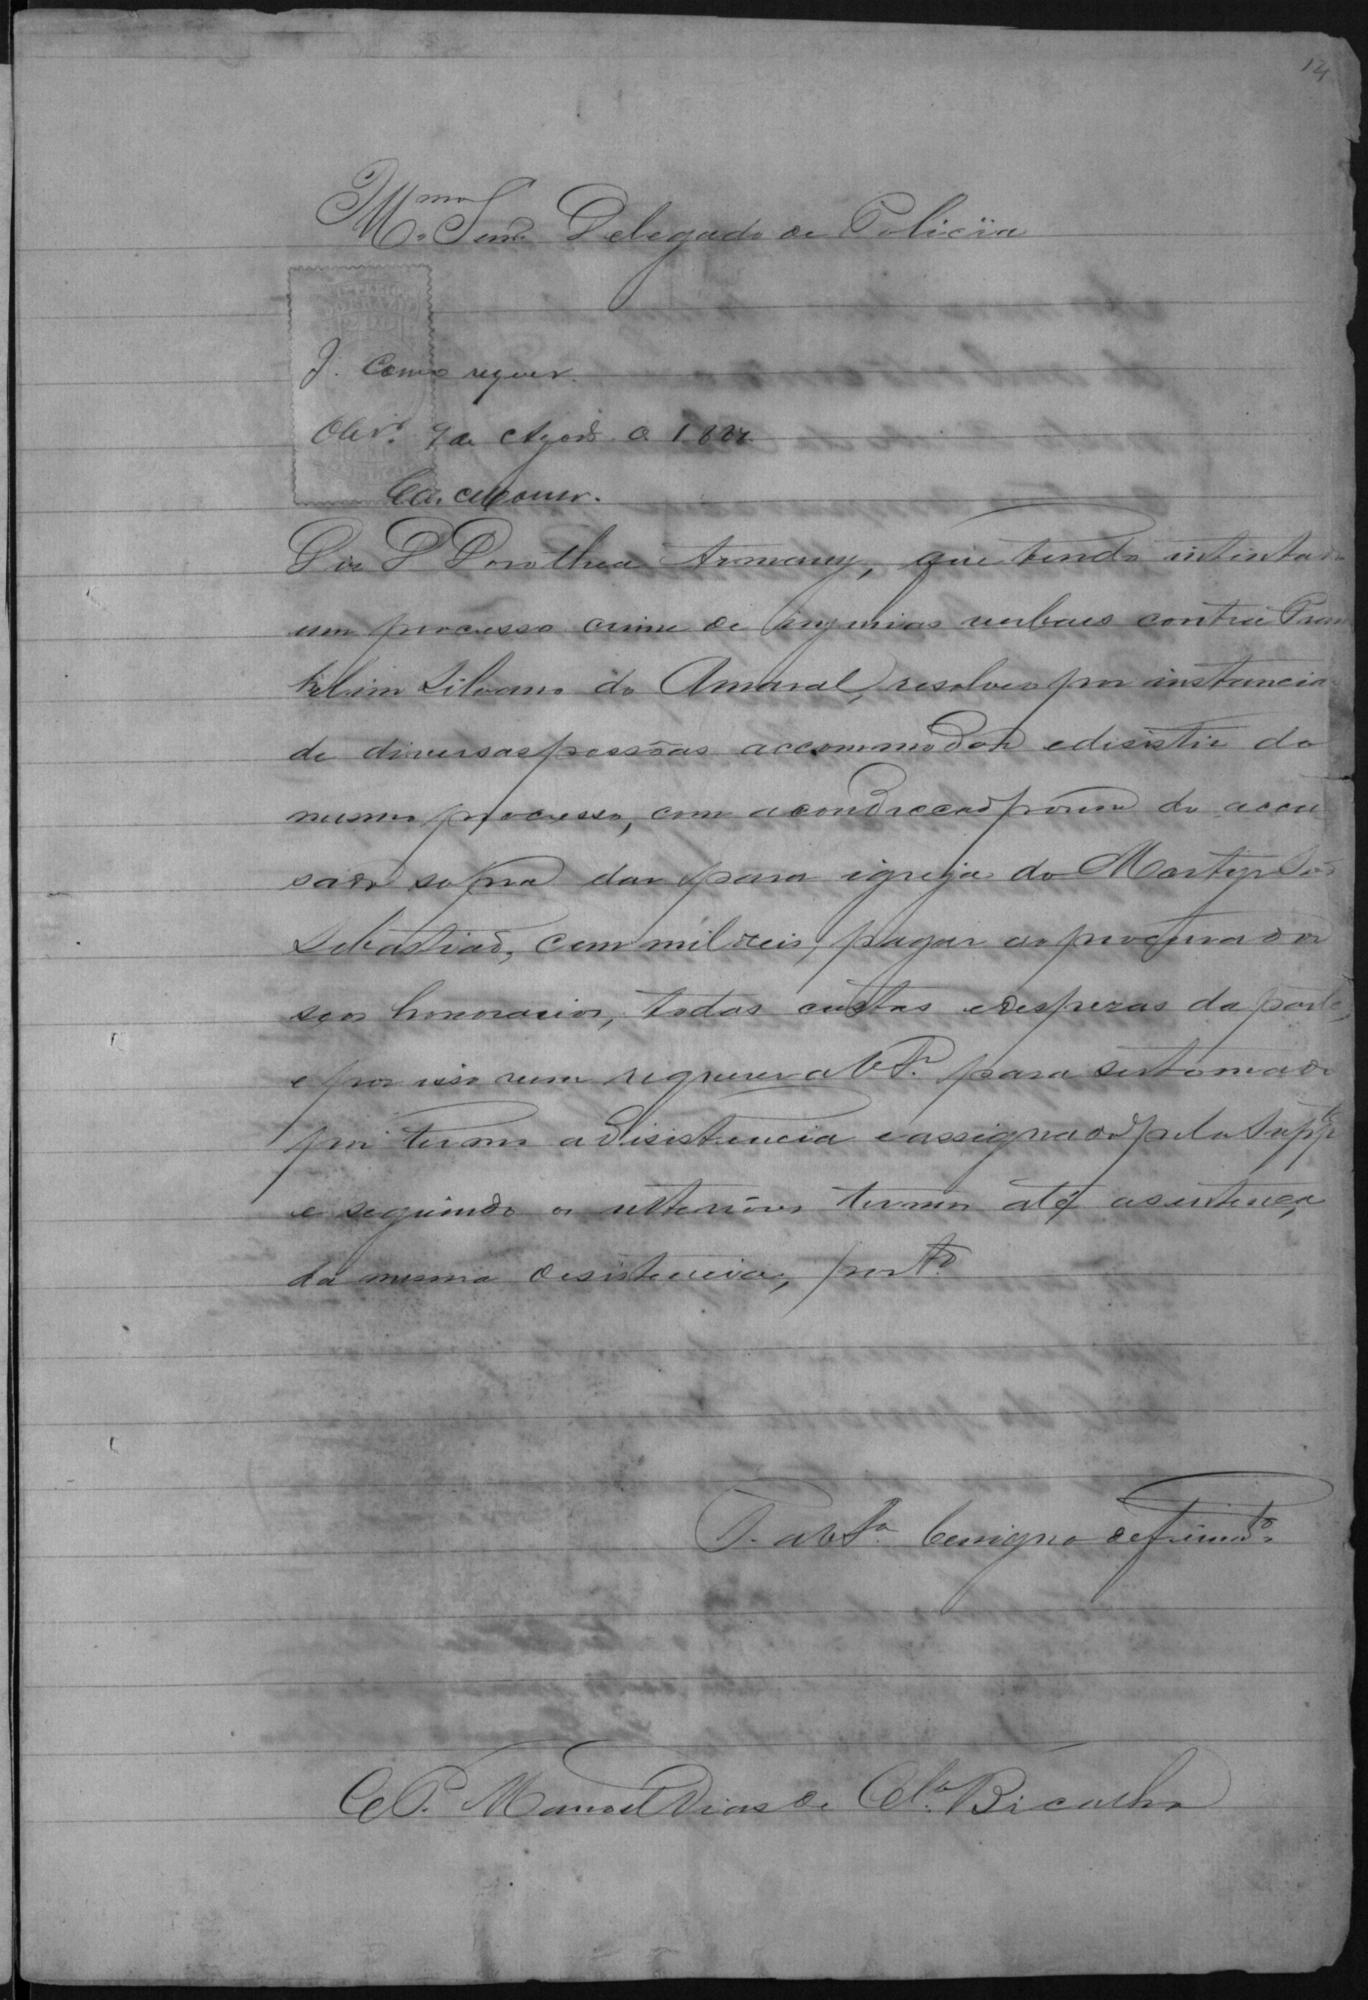 14
Illmo. Senr. Delegado de Policia
J. Como requer.
Olivrª 7 de Agosto de 1888
Diz D Dorothea Armany, que tendo intentado
um processo crime de injurias verbaes contra Fran
kelim Silvano do Amaral, resolveo por instancia
de diversas pessôas accommodar e desistir do
mesmo processo, com a condiccaõ porem do accu
sado supra dar para igreja do Martyr Saõ
Sebastiaõ, cem mil reis, pagar ao procurador
seos honorarios, todas custas e despezas da parte,
e por isso vem requerer a V Sª. para ser tomado
por termo a disistencia e assignado pela Suppte
e seguindo os ulteriores termos até a sentença
da mesma desistencia, porto.
P. a V Sª. benigno deferimto.
O P. Manoel Dias de Olª. Bicalho